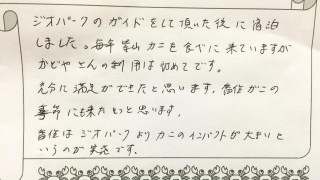 ジオパークのガイドをして頂いた後に宿泊
しました。毎年 柴山 カニを食べに来ていますが
かどやさんの利用は初めてです。
充分に満足ができたと思います。皆住がこの
季節にも来たいと思います。
皆住は ジオパークよりカニのインパクトが大きいと
いうのが実感です。